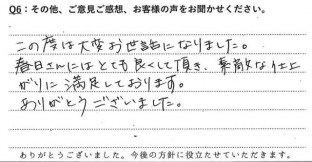 Q6：その他、ご意見ご感想、お客様の声をお聞かせください。
この度は大変お世話になりました。
春日さんにはとても良くして頂き、素敵な仕上
がりに満足しております。
ありがとうございました。
ありがとうございました。今後の方針に役立たせていただきます。